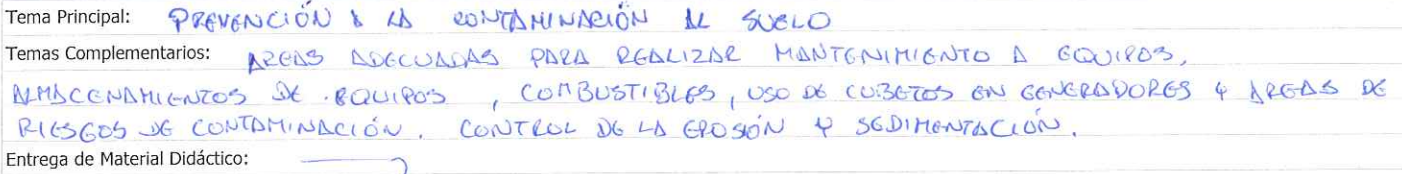 Tema Principal: PREVENCIÓN A LA CONTAMINACIÓN AL SUELO
Temas Complementarios: AREAS ADECUADAS PARA REALIZAR MANTENIMIENTO A EQUIPOS,
ALMACENAMIENTOS DE EQUIPOS, COMBUSTIBLES, USO DE CUBETOS EN GENERADORES Y AREAS DE
RIESGOS DE CONTAMINACIÓN. CONTROL DE LA EROSIÓN Y SEDIMENTACIÓN.
Entrega de Material Didáctico: